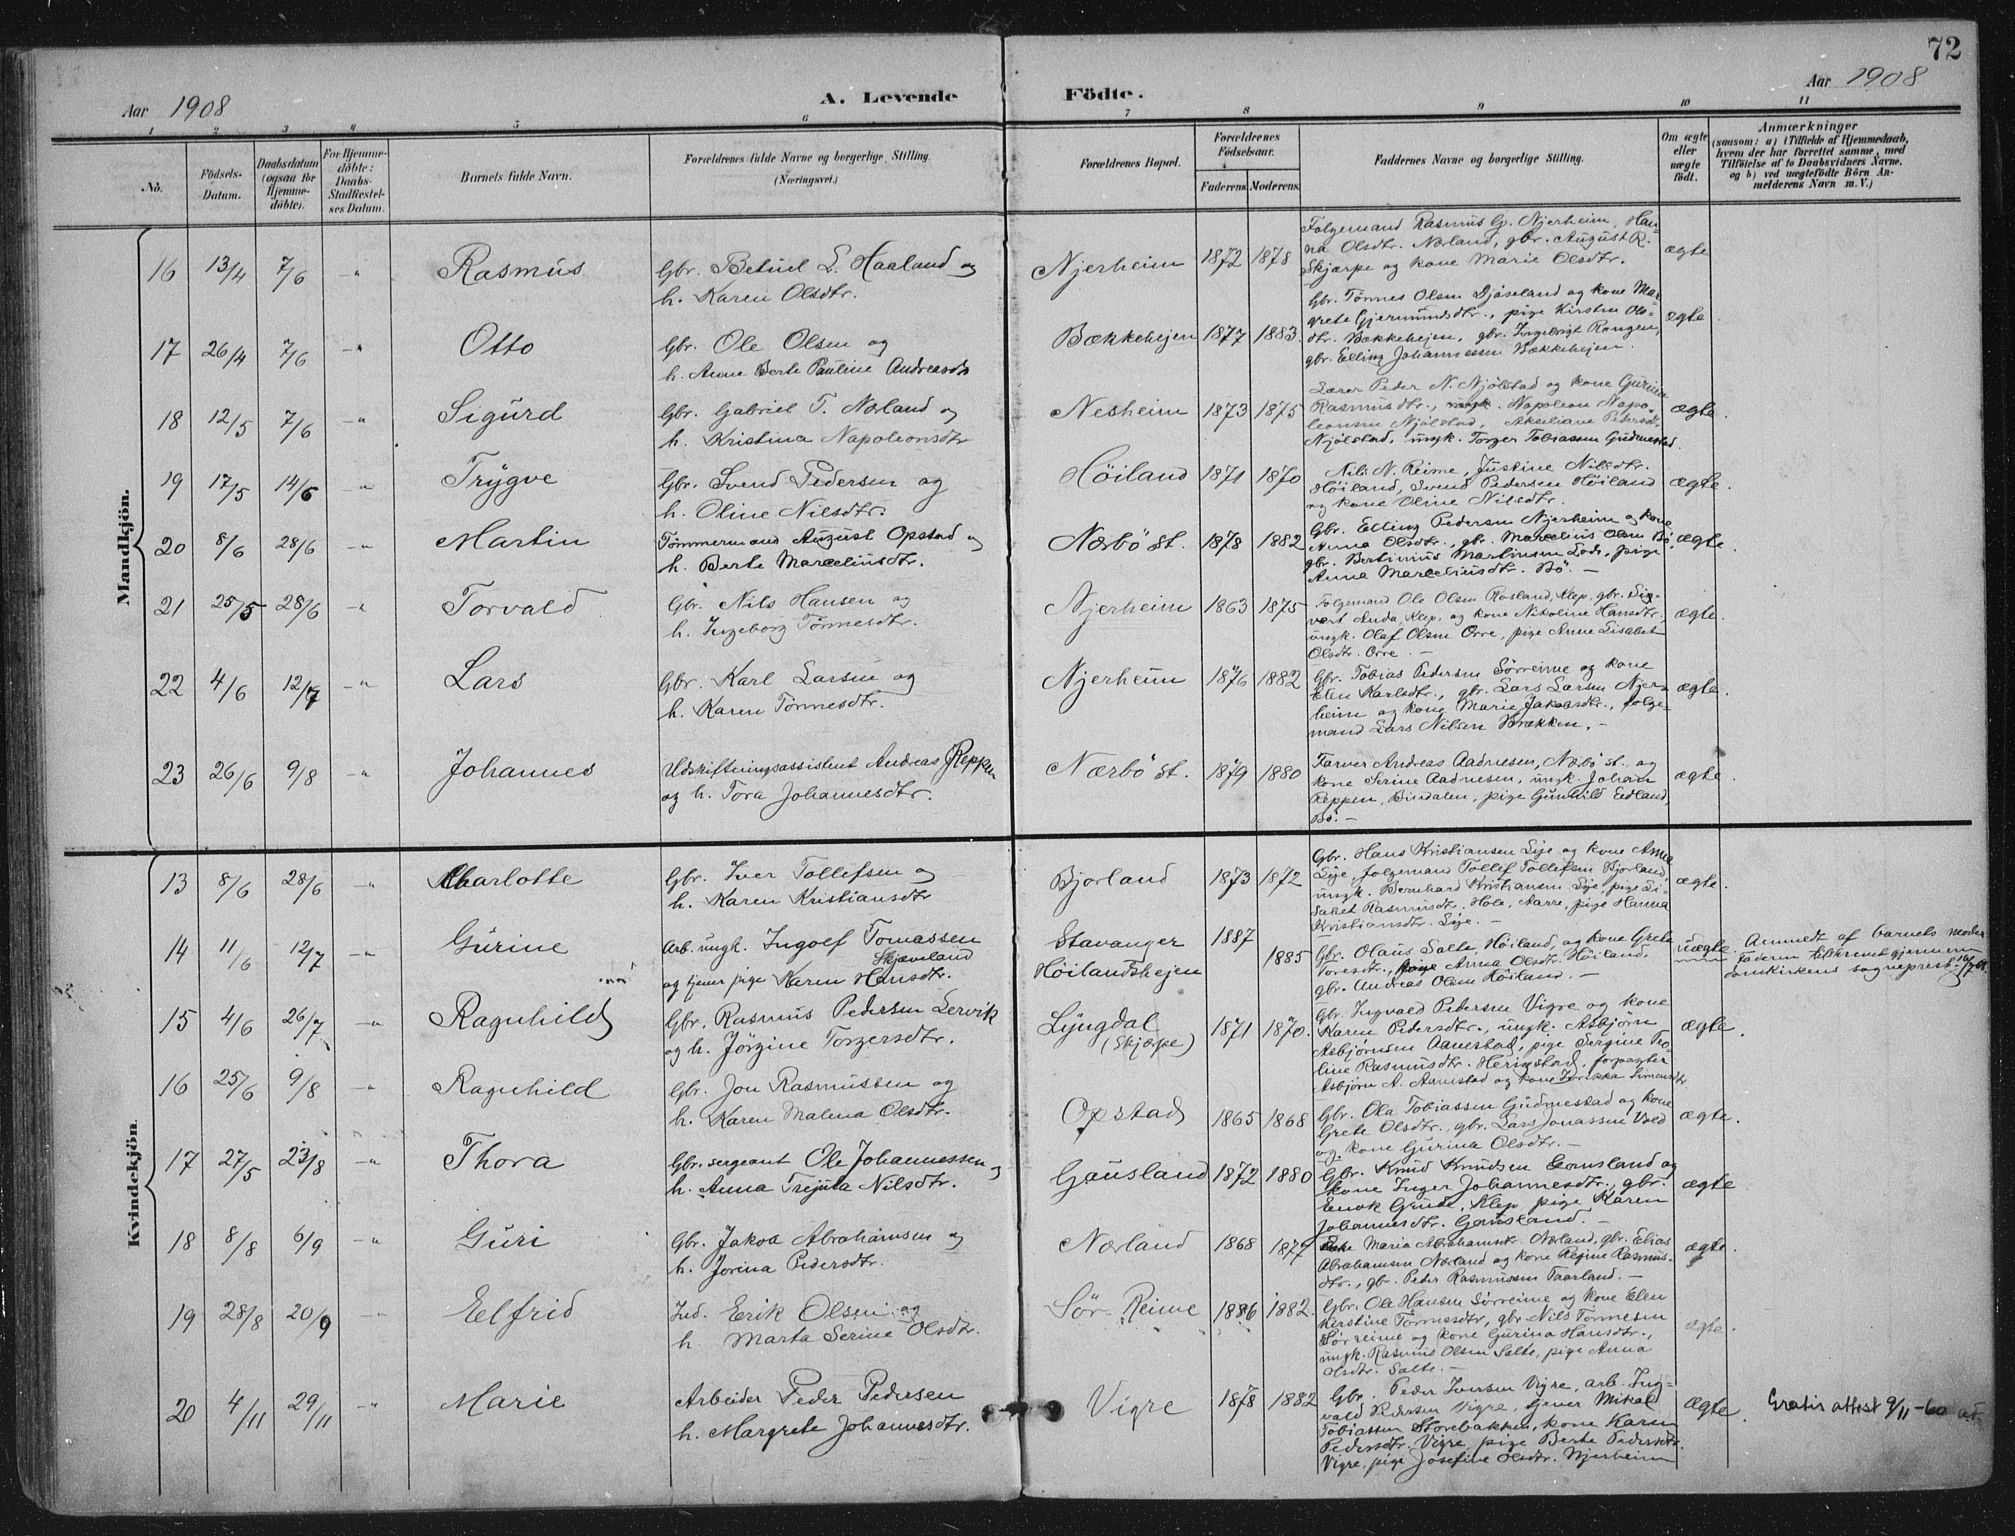 72
Aar 1908
A. Levende Födte.
Aar 1908
1 2 3 4 5 6 7 8 9 10 11
No.
Födsels-Datum.
Daabsdatum (ogsaa for Hjemmedöbte).
For Hjemmedöbte: Daabs-Stadfæstelses Datum.
Barnets fulde Navn.
Forældrenes fulde Navne og borgerlige Stilling. (Næringsvei.)
Forældrenes Bopæl.
Forældrenes Födselsaar.
Faderens. Moderens.
Faddernes Navne og borgerlige Stilling.
Om ægte eller uægte födt.
Anmærkninger
(saasom: a) i Tilfælde af Hjemmedaab,
hvem der har forrettet samme, med
Tilföielse af to Daabsvidners Navne,
og b) ved uægtefödte Börn Anmelderens Navn m. V.)
Mandkjön.
16 13/4 7/6 -"- Rasmus
Gbr. Betuel L. Haaland og
h. Karen Olsdtr.
Njerheim 1872 1878
Folgemand Rasmus G. Njerheim, Han-
na Olsdtr. Nærland, gbr. August R.
Skjærpe og kone Marie Olsdtr.
ægte
17 26/4 7/6 -"- Otto
Gbr. Ole Olsen og
h. Anne Berte Pauline Andreasdtr
Bækkehejen 1877 1883.
Gbr. Tönnes Olsen Djåseland og kone Mar-
grete Gjermundsdtr., pige Kirsten Ols-
dtr. Bækkehejen, gbr. Ingebrigt Rongen,
gbr. Elling Johannessen Bækkehejen.
ægte
18 12/5 7/6 -"- Sigurd
Gbr. Gabriel T. Nærland og
h. Kristina Napoleonsdtr
Nesheim 1873 1875
Lærer Peder N. Njölstad og kone Gurina
Rasmusdtr., ungk. Napoleon Napo-
leonsen Njölstad, Akseliane Pedersdtr.
Njölstad, ungk. Torger Tobiassen Gudmestad.
ægte.
19 17/5 14/6 -"- Trygve
Gbr. Svend Pedersen og
h. Oline Nilsdtr.
Höiland 1871 1870
Nils N. Reime, Justine Nilsdtr.
Höiland, Svend Pedersen Höiland
og kone Oline Nilsdtr.
ægte.
20 8/6 28/6 -"- Martin
Tömmermand August Opstad og
h. Berte Marceliusdtr.
Nærbö st. 1878 1882
Gbr. Elling Pedersen Njerheim og kone
Anna Olsdtr., gbr. Marcelius Olsen Bö,
gbr. Bertinius Martinsen Lode, pige
Anna Marceliusdtr. Bö. -
ægte.
21 25/5 28/6 -"- Torvald
Gbr. Nils Hansen og
h. Ingeborg Tönnesdtr.
Njerheim 1863 1875
Folgemand Ole Olsen Rosland, Klep, gbr. Sig-
vart Anda, Klep, og kone Nikoline Hansdtr.,
ungk. Olaf Olsen Orre, pige Anne Lisabet
Olsdtr. Orre. -
ægte.
22 4/6 12/7 -"- Lars
Gbr. Karl Larsen og
h. Karen Tönnesdtr.
Njerheim 1876 1882
Gbr. Tobias Pedersen Sörreime og kone
Elen Karlsdtr., gbr. Lars Larsen Njer-
heim og kone Marie Jakobsdtr., folge-
mand Lars Nilsen Brækken. -
ægte.
23 26/6 9/8 -"- Johannes
Udskiftningsassistent Andreas J Reppen
og h. Tora Johannesdtr.
Nærbö st. 1879 1880
Farver Andreas Aadnesen, Nærbö st., og
kone Serine Aadnesen, ungk. Johan
Reppen, Bindalen, pige Gunhild Edland,
Bö. -
ægte.
Kvindekjön.
13 8/6 28/6 -"- Charlotte
Gbr. Iver Tollefsen og
h. Karen Kristiansdtr
Bjorland 1873 1872
Gbr. Hans Kristiansen Lye og kone Anna
Lye, folgemand Tollef Tollefsen Bjorland,
ungk. Bernhard Kristiansen Lye, pige Li-
sabet Rasmusdtr. Hole, Aarre, pige Hanna
Kristiansdtr. Lye. -
ægte.
14 11/6 12/7 -"- Gurine
Arb. ungk. Ingolf Tomassen
Skjæveland
og tjener pige Karen Hansdtr.
Stavanger 1887
Höilandshejen 1885
Gbr. Olaus Salte, Höiland, og kone Grete
Toresdtr., pige Anna Olsdtr. Höiland,
gbr. Andreas Olsen Höiland. -
uægte
Anmeldt af barnets moder
faderen tilkrevet gjennem
domkirkens sogneprest
15 4/6 26/7 -"- Ragnhild
Gbr. Rasmus Pedersen Lervik
og h. Jörgine Torgersdtr.
Lyngdal 1871 1870.
(Skjærpe)
Gbr. Ingvald Pedersen Vigre og kone
Karen Pedersdtr., ungk. Asbjörn
Asbjörnsen Aanestad, pige Sergine Teo-
line Rasmusdtr. Herigstad, forpagter
Asbjörn A. Aanestad og kone Simonsdtr.
ægte.
16 25/6 9/8 -"- Ragnhild
Gbr. Jon Rasmussen og
h. Karen Malena Olsdtr.
Opstad 1865 1868
Gbr. Ola Tobiassen Gudmestad og kone
Grete Olsdtr., gbr. Lars Jonassen Voll
og kone Gurina Olsdtr. -
ægte.
17 27/5 23/8 -"- Thora
Gbr. sergeant Ole Johannessen og
h. Anna Trejuta Nilsdtr.
Gausland 1872 1880
Gbr. Knud Knudsen Eomsland og
kone Inger Johannesdtr., gbr.
Enok Grude, Klep, pige Karen
Johannesdtr. Gausland. -
ægte.
18 8/8 6/9 -"- Guri
Gbr. Jakob Abrahamsen og
h. Jorina Pedersdtr.
Nærland 1868 1877
Enke Maria Abrahamsdtr. Nærland, gbr. Elias
Abrahamsen Nærland og kone Regine Rasmus-
dtr., gbr. Peder Rasmussen Taarland. -
ægte.
19 28/8 20/9 -"- Elfrid
Ind. Eerik Olsen og
h. Marta Serine Olsdtr.
Sör-Reime 1886 1882.
Gbr. Ole Hansen Sörreime og kone Elen
Kirstine Tönnesdtr, gbr Nils Tönnesen
Sörreime og kone Gurina Hansdtr.,
ungk. Rasmus Olsen Salte, pige Anna
Olsdtr. Salte. -
ægte.
20 4/11 29/11 -"- Marie
Arbeider Peder Pedersen
h. Margrete Johannesdtr.
Vigre 1878 1882
Gbr. Peder Iversen Vigre, arb. Ing-
vald Pedersen Vigre, tjener Mikal
Tobiassen Storebakken, kone Karen
Pedersdtr. Vigre, pige Berte Pedersdtr.
Vigre, pige Josefine Olsdtr. Njerheim
ægte.
Gratis attest 9/11-60